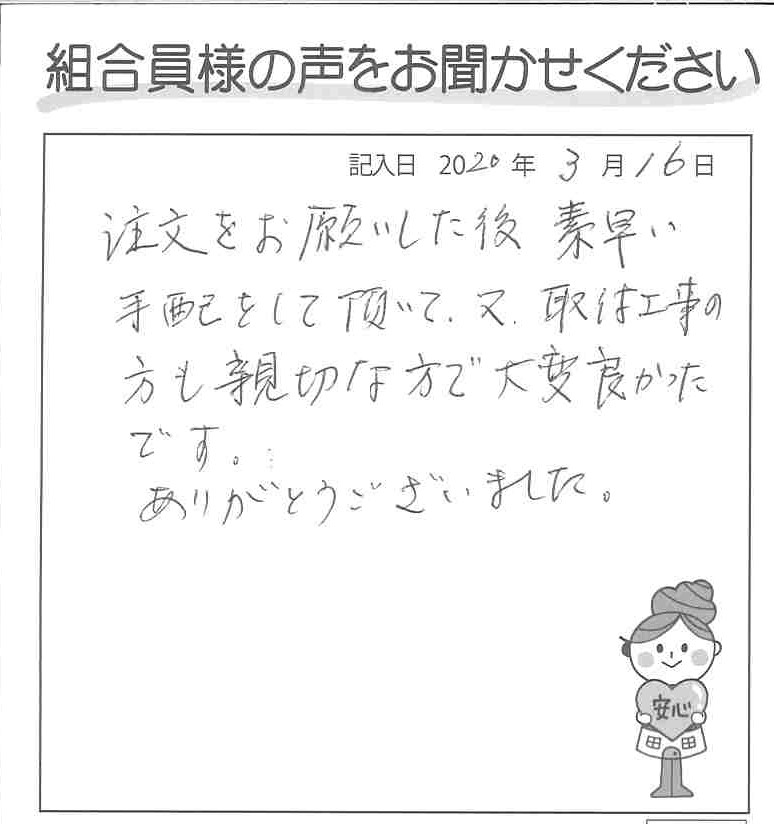 組合員様の声をお聞かせください
記入日 2020年 3月16日
注文をお願いした後 素早い
手配をして頂いて、又、取付工事の
方も親切な方で大変良かった
です。
ありがとうございました。
安心